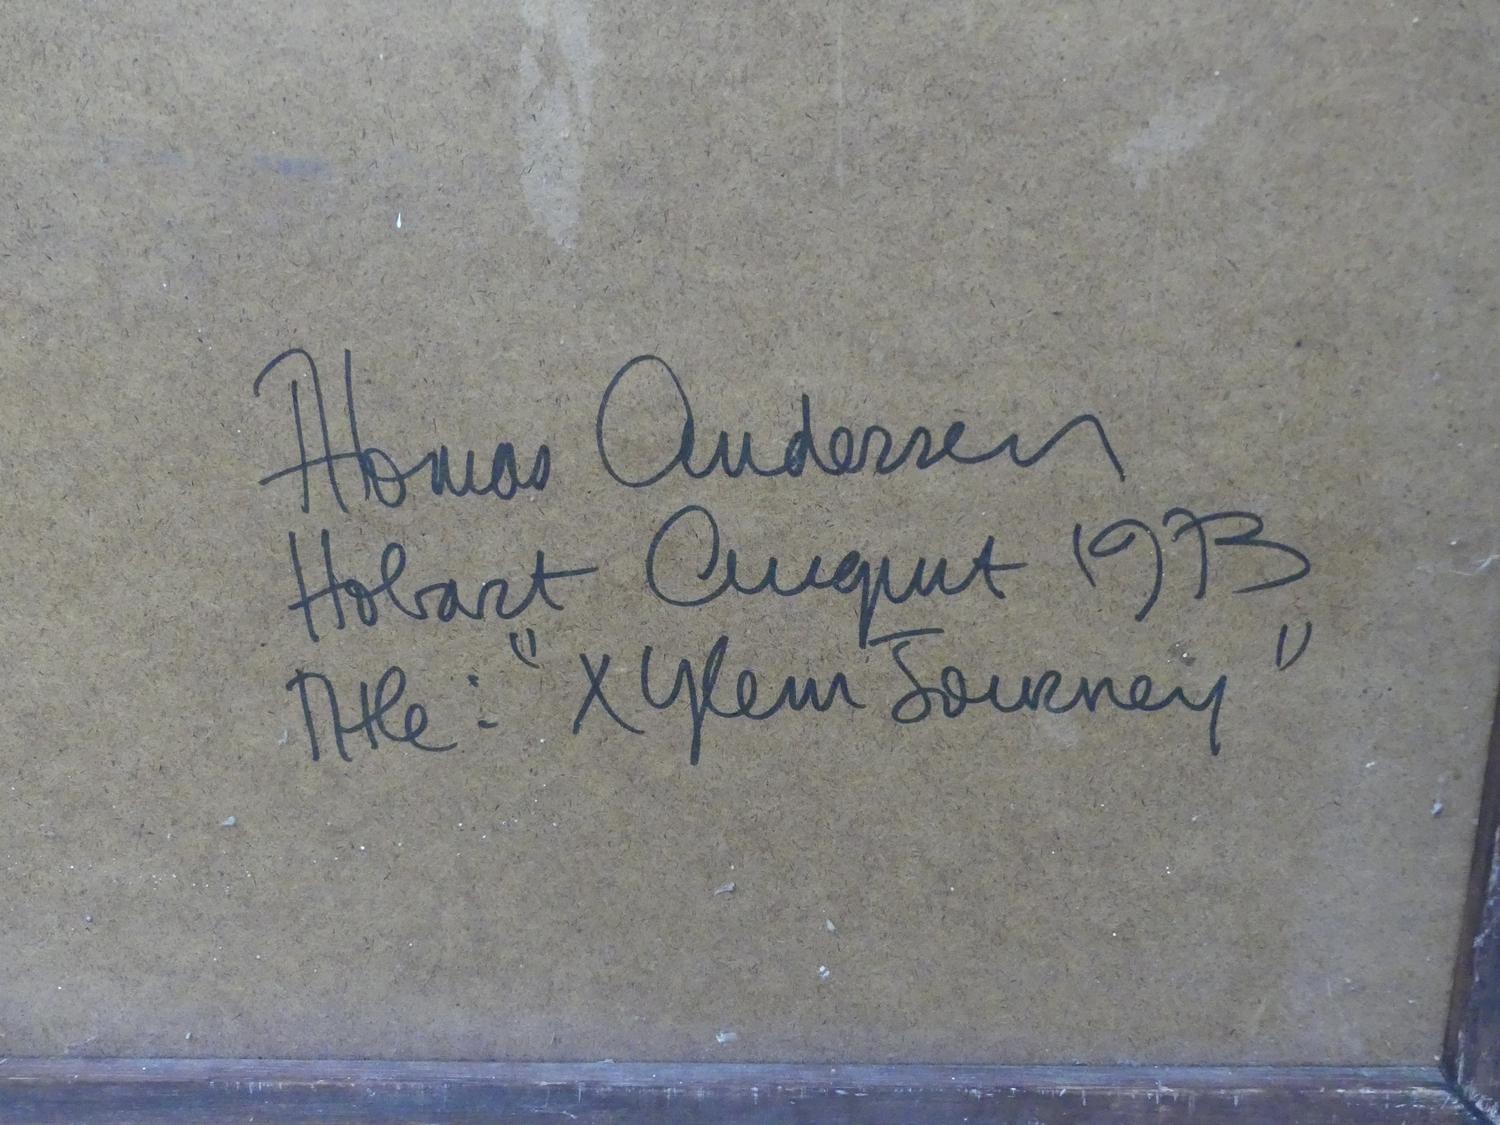 Thomas Anderssen
Hobart August 1973
Title: "Xylem Journey"